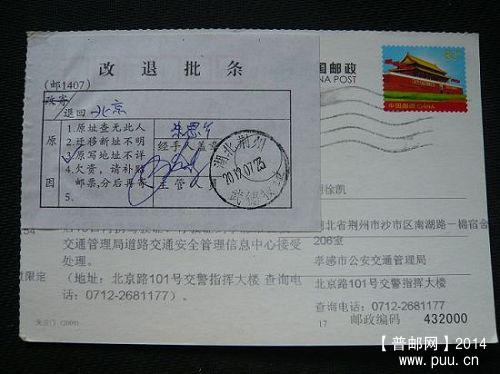 改退批条
(邮1407)
改寄
退回 北京
原
因
1.原址查无此人
2.迁移新址不明
3.原写地址不详
4.欠资，请补贴
邮票，分后再寄
5.
经手人盖章
主管人员
湖北荆州
2012.07.23
国邮政
NA POST
80
中国邮政 CHINA
徐凯
湖北省荆州市沙市区南湖路一棉宿舍
206室
孝感市公安交通管理局
北京路101号交警指挥大楼
查询电话：0712-2681177
17
邮政编码 432000
54
交通管理局道路交通安全管理信息中心接受
处理。
（地址：北京路101号交警指挥大楼 查询电
话：0712-2681177）
故限定
天安门 (2009)
【普邮网】2014
www.puu.cn